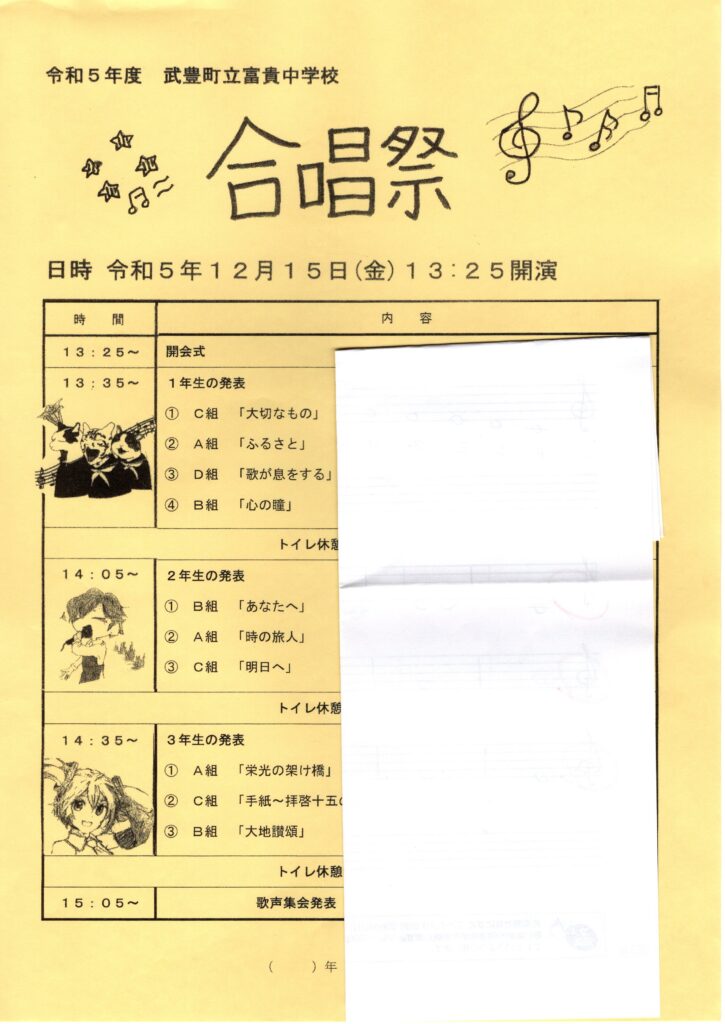 令和５年度　武豊町立富貴中学校
合唱祭
日時 令和５年１２月１５日(金)１３：２５開演
時　間　内　容
１３：２５～　開会式
１３：３５～　１年生の発表
①　Ｃ組　「大切なもの」
②　Ａ組　「ふるさと」
③　Ｄ組　「歌が息をする」
④　Ｂ組　「心の瞳」
トイレ休憩
１４：０５～　２年生の発表
①　Ｂ組　「あなたへ」
②　Ａ組　「時の旅人」
③　Ｃ組　「明日へ」
トイレ休憩
１４：３５～　３年生の発表
①　Ａ組　「栄光の架け橋」
②　Ｃ組　「手紙～拝啓十五の
③　Ｂ組　「大地讃頌」
トイレ休憩
１５：０５～　歌声集会発表
（　　　）年